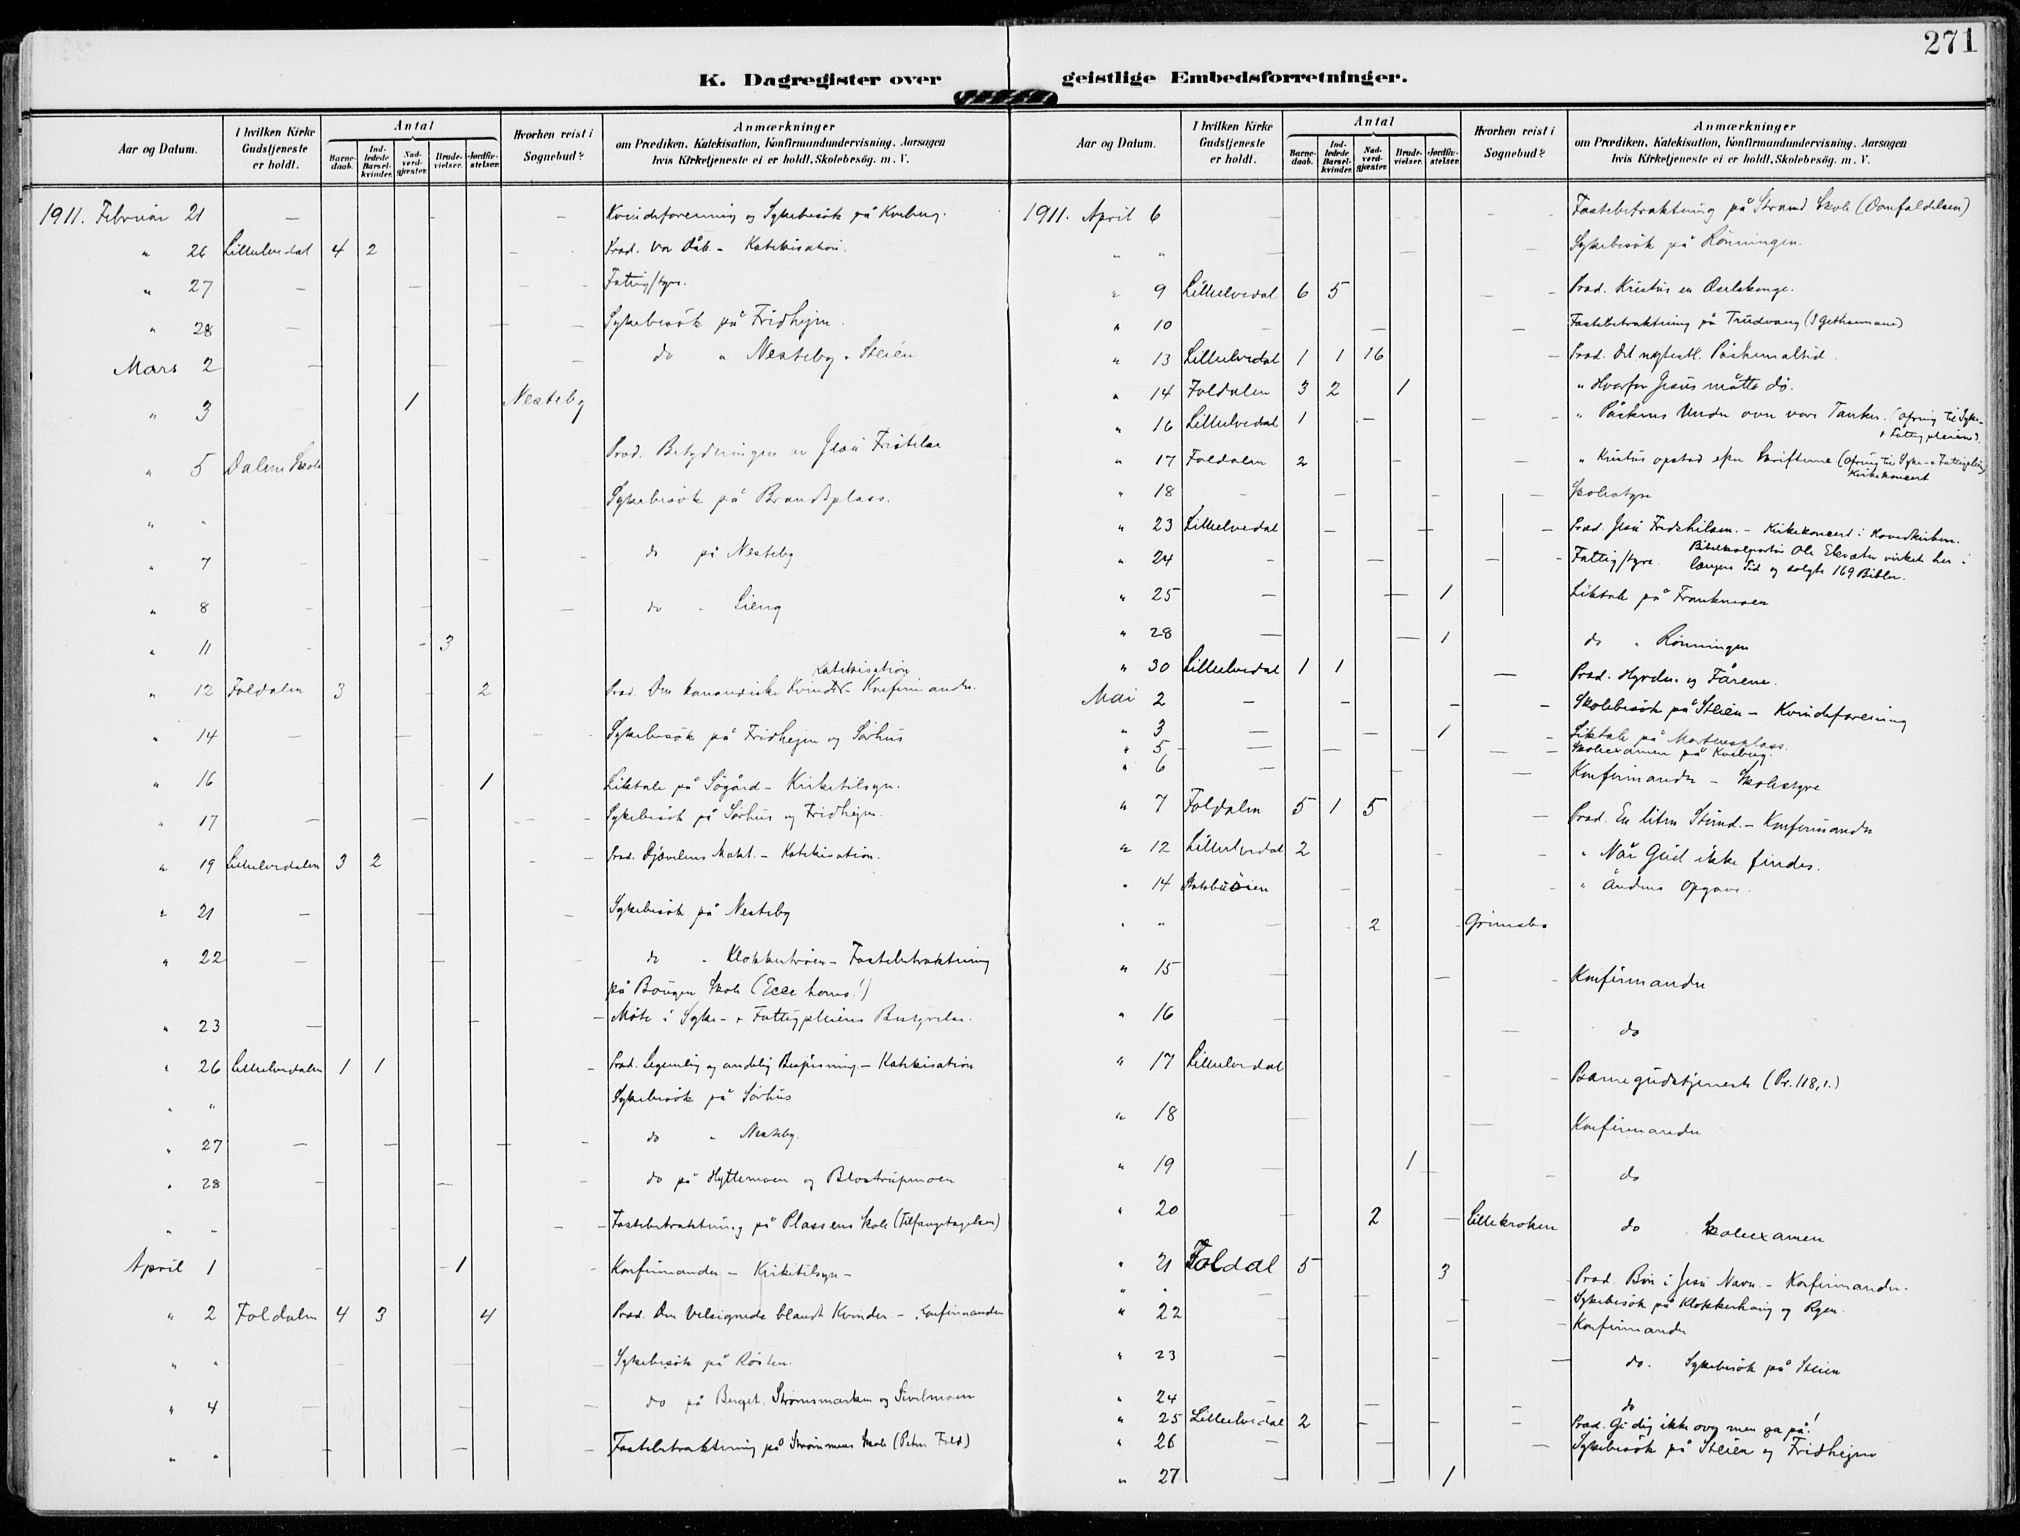 271
K. Dagregister over geistlige Embedsforretninger.
Aar og Datum. I hvilken Kirke Gudstjeneste er holdt. Antal Barnedaab. Indledede Barselkvinder. Nadverdgjæster. Brudevielser. Jordfæstelser. Hvorhen reist i Sognebud? Anmærkninger om Prædiken, Katekisation, Konfirmandundervisning, Aarsagen hvis Kirketjeneste ei er holdt, Skolebesøg. m. V.
1911. Februar 21 — — — Kvindeforening og Sykebesök på Kveberg.
" 26 Lilleelvedal 4 2 - - Præd. Vor Dåb - Katekisation.
" 27 — — — — Fattigstyre.
" 28 — — — — Sykebesök på Fridhejm.
Mars 2 — — — do " Nesteby - Steien
" 3 — 1 Nesteby
" 5 Dalen Skole Præd. Betydningen av Jesu Fristelse
" " — Sykebesök på Brandtplass.
" 7 — — — do på Nesteby
" 8 — — — do " Lieng
" 11 — - 3
Katekisation
" 12 Foldalen 3 - 2 Præd. Den kananæiske Kvinde - Konfirmander.
" 14 — — — Sykebesök på Fridhejm og Sörhus
" 16 — — 1 Liktale på Sögård - Kirketilsyn.
" 17 — — — Sykebesök på Sörhus og Fridhejm.
" 19 Lilleelvedalen 3 2 - - Præd. Djævelens Makt. - Katekisation.
" 21 — — — Sykebesök på Nesteby
" 22 — — — do " Klokkertröen - Fastebetraktning
på Bougen Skole (Ecce homo!)
" 23 — — — Möte i Syke- + Fattigpleiens Bestyrelse.
" 26 Lilleelvedalen 1 1 - Præd. Legemlig og åndelig Bespisning - Katekisation
" " Sykebesök på Sörhus
" 27 — — — — do " Nesteby.
" 28 — — — do på Hyttemoen og Blostrupmoen
" " — — — Fastebetraktning på Plassens Skole (Tilfangetagelsen)
April 1 - - 1 - Konfirmander - Kirketilsyn -
" 2 Foldalen 4 3 4 Præd. Den velsignede blandt Kvinder. - Konfirmander
" " — — — Sykebesök på Rösten.
" 4 — — — do på Berget, Strömsmarken og Sivilmoen
" " — — — Fastebetraktning på Strömmens Skole (Peters Fald)
Aar og Datum. I hvilken Kirke Gudstjeneste er holdt. Antal Barnedaab. Indledede Barselkvinder. Nadverdgjæster. Brudevielser. Jordfæstelser. Hvorhen reist i Sognebud? Anmærkninger om Prædiken, Katekisation, Konfirmandundervisning, Aarsagen hvis Kirketjeneste ei er holdt, Skolebesøg. m. V.
1911. April 6 — — — Fastebetraktning på Strand Skole (Domfældelsen)
" " — — — Sykebesök på Rönningen.
" 9 Lilleelvedal 6 5 — - Præd. Kristus en Ærekonge.
" 10 — — — Fastebetraktning på Trudvang (I Gethsemane)
" 13 Lilleelvedal 1 1 16 — Præd. Det nytestl. Påskemåltid.
" 14 Foldalen 3 2 1 " Hvorfor Jesus måtte dö.
" 16 Lilleelvedal 1 — — — " Påskens Under over vore Tanker. (Ofring til Syke-
+ Fattigpleien).
" 17 Foldalen 2 — — " Kristus opstod efter Skrifterne (Ofring til Syke- + Fattigpleien)
Kirkekoncert
" 18 — — — Skolestyre
" 23 Lilleelvedal — — — Præd. Jesu Fredshilsen. - Kirkekoncert i Hovedkirken.
" 24 — — — Fattigstyre. Bibelkolportör Ole Ekvæter virket her i
længere Tid og solgte 169 Bibler.
" 25 — — 1 Liktale på Frankmoen
" 28 — — 1 do " Rönningen
" 30 Lilleelvedal 1 1 — Præd. Hyrden og Fårene.
Mai 2 — — — — Skolebesök på Steien - Kvindeforening
" 3 — 1 Liktale på
" 5 — — — — Skoleexamen på Kveberg.
" 6 — — — Konfirmander - Skolestyre
" 7 Foldalen 5 1 5 — Præd. En liten Stund. - Konfirmander
" 12 Lilleelvedal 2 - - " Når Gud ikke findes.
" 14 - - - " Åndens Opgave.
" " 2 - Grimsbo
" 15 — — — Konfirmander
" 16 — — do
" 17 Lilleelvedal — — Barnegudstjeneste (Ps. 118,1.)
" 18 — — — Konfirmander
" 19 — 1 — — do
" 20 2 — Lillekroken do Skoleexamen
" 21 Foldal 5 3 - Præd. Bön i Jesu Navn. - Konfirmander.
" " — — — Sykebesök på Klokkerhaug og Ryen.
" 22 — — — Konfirmander
" 23 — — — do. Sykebesök på Steien
" 24 — — — do
" 25 Lilleelvedal 2 — — Præd. Gi dig ikke over men gå på!
" 26 — — — Sykebesök på Steien og Fridhejm
" 27 — — 1